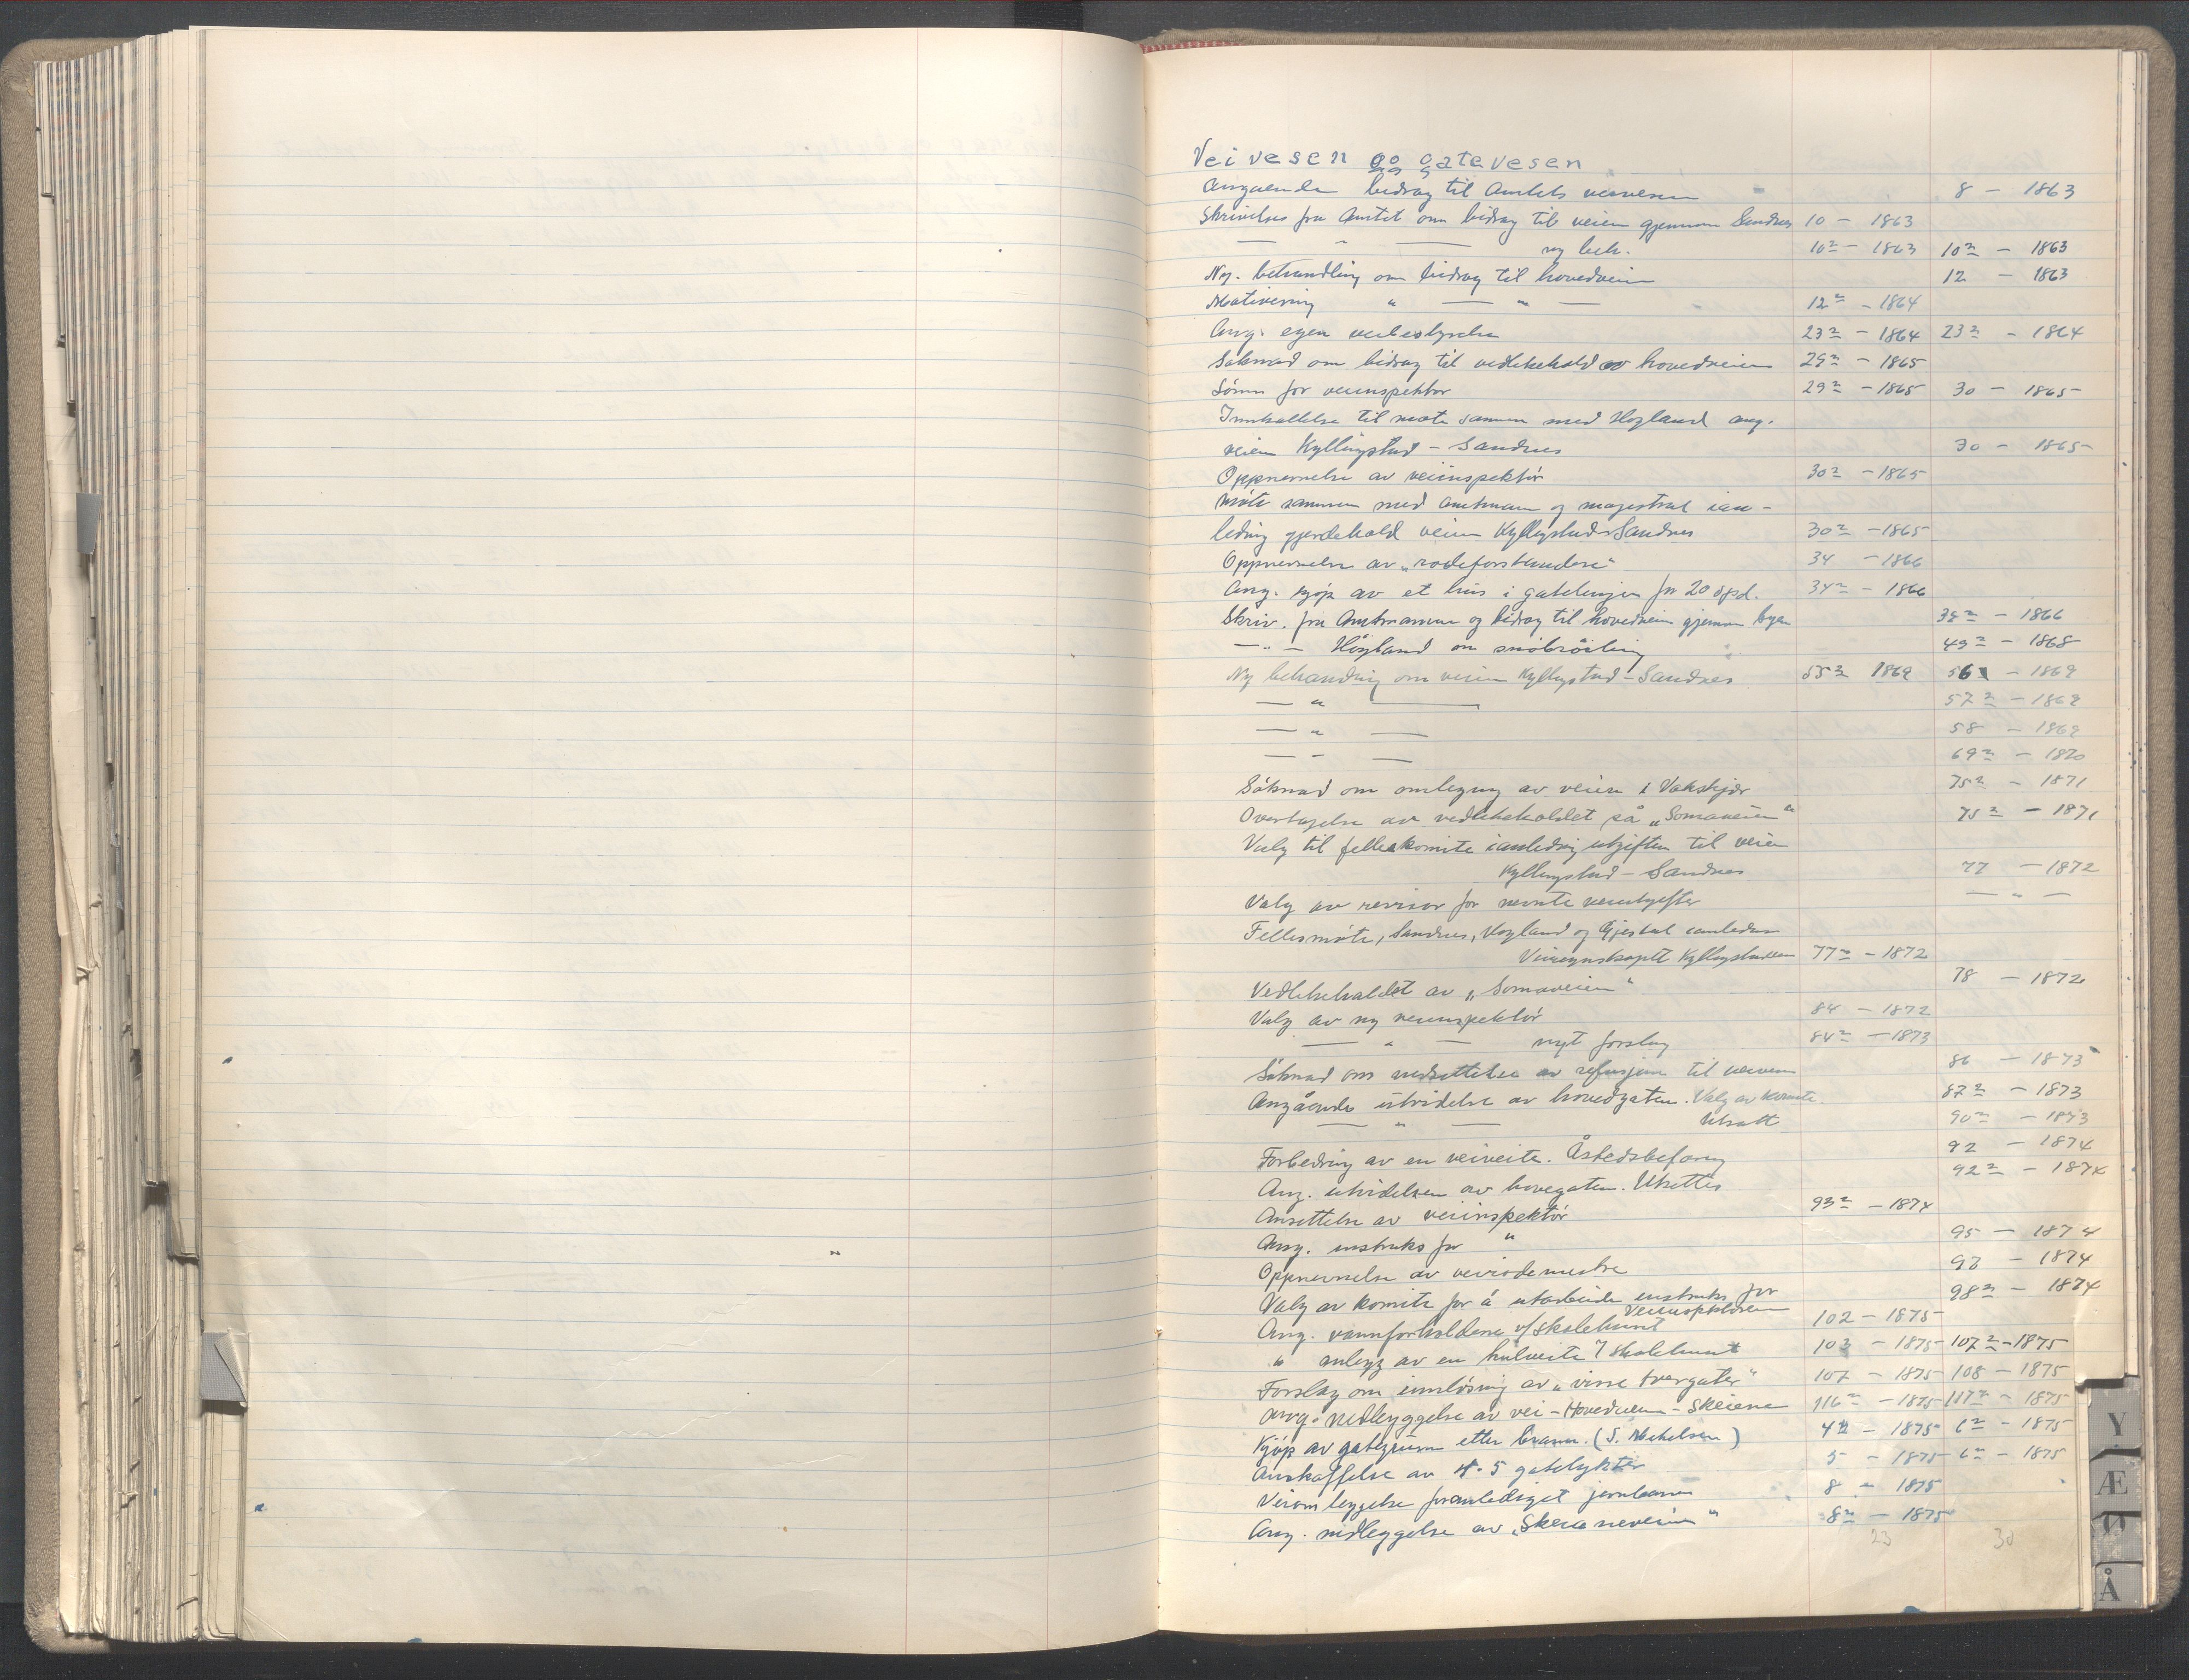 Veivesen og gatevesen
Angaaende bidrag til Amtets veivesen 8 - 1863
Skrivelse fra Amtet om bidrag til veien gjennem Sandnes 10 - 1863
— " — ny beh. 10 2 - 1863 10 2 - 1863
Ny. behandling om bidrag til hovedveien 12 - 1863
Motivering " — " — 12 2 - 1864
Ang. egen veibestyrelse 23 2 - 1864 23 2 - 1864
Søknad om bidrag til vedlikehold av hovedveien 29 2 - 1865
Lønn for veiinspektør 29 2 - 1865 30 - 1865
Innkallelse til møte sammen med Høgland ang.
veien Kyllingstad - Sandnes 30 - 1865
Oppnevnelse av veiinspektør 30 2 - 1865
Møte sammen med amtmann og magistrat i an-
ledning gjerdehold veien Kyllingstad - Sandnes 30 2 - 1865
Oppnevnelse av „rodeforstandere" 34 - 1866
Ang. kjøp av et hus i gatelinjen for 20 spd. 34 2 - 1866
Skriv. fra Amtmannen og bidrag til hovedveien gjennem byen 38 2 - 1866
— " — Høyland om snøbrøiting 49 2 - 1868
Ny behandling om veien Kyllingstad - Sandnes 55 2 1869 56 - 1869
— " — 57 2 - 1869
— " — 58 - 1869
— " — 69 2 - 1870
Søknad om omlegning av veien i Vakskjær 75 2 - 1871
Overtagelse av vedlikeholdet på „Somaveien" 75 2 - 1871
Valg til felleskomite i anledning utgiften til veien
Kyllingstad - Sandnes 77 - 1872
Valg av revisor for nevnte veiutgifter — " —
Fellesmøte, Sandnes, Høyland og Gjestal i anledn
Veiregnskapet Kyllingstadveien 77 2 - 1872
Vedlikeholdet av „Somaveien" 78 - 1872
Valg av ny veiinspektør 84 - 1872
— " — nyt forslag 84 2 - 1873
Søknad om nedsettelse av refusjon til veivesen 86 - 1873
Angående utvidelse av hovedgaten. Valg av komite 87 2 - 1873
— " — Utsatt 90 2 - 1873
Forbedring av en veiveite. Åstedsbefaring 92 - 1874
Ang. utvidelsen av hovegaten. Utsettes 92 2 - 1874
Ansettelse av veiinspektør 93 2 - 1874
Ang. instruks for " 95 - 1874
Oppnevnelse av veirodemestre 97 - 1874
Valg av komite for å utarbeide instruks for 98 2 - 1874
Veiinspektøren
Ang. vannforholdene v/ skolehuset 102 - 1875
" anlegg av en kulveite / skolehuset 103 - 1875 107 2 - 1875
Forslag om innløsning av „visse tvergater" 107 - 1875 108 - 1875
Ang. nedleggelse av vei - Hovedveien - Skeiene 116 2 - 1875 117 2 - 1875
Kjøp av gategrunn etter brann. (S. Mikelsen) 4 2 - 1875 6 2 - 1875
Anskaffelse av 4-5 gatelykter 5 - 1875 6 2 - 1875
Veiomleggelse foranlediget jernbanen 8 - 1875
Ang. nedleggelse av „Skeianeveien" 8 2 - 1875
23 30
Y
Æ
Ø
Å